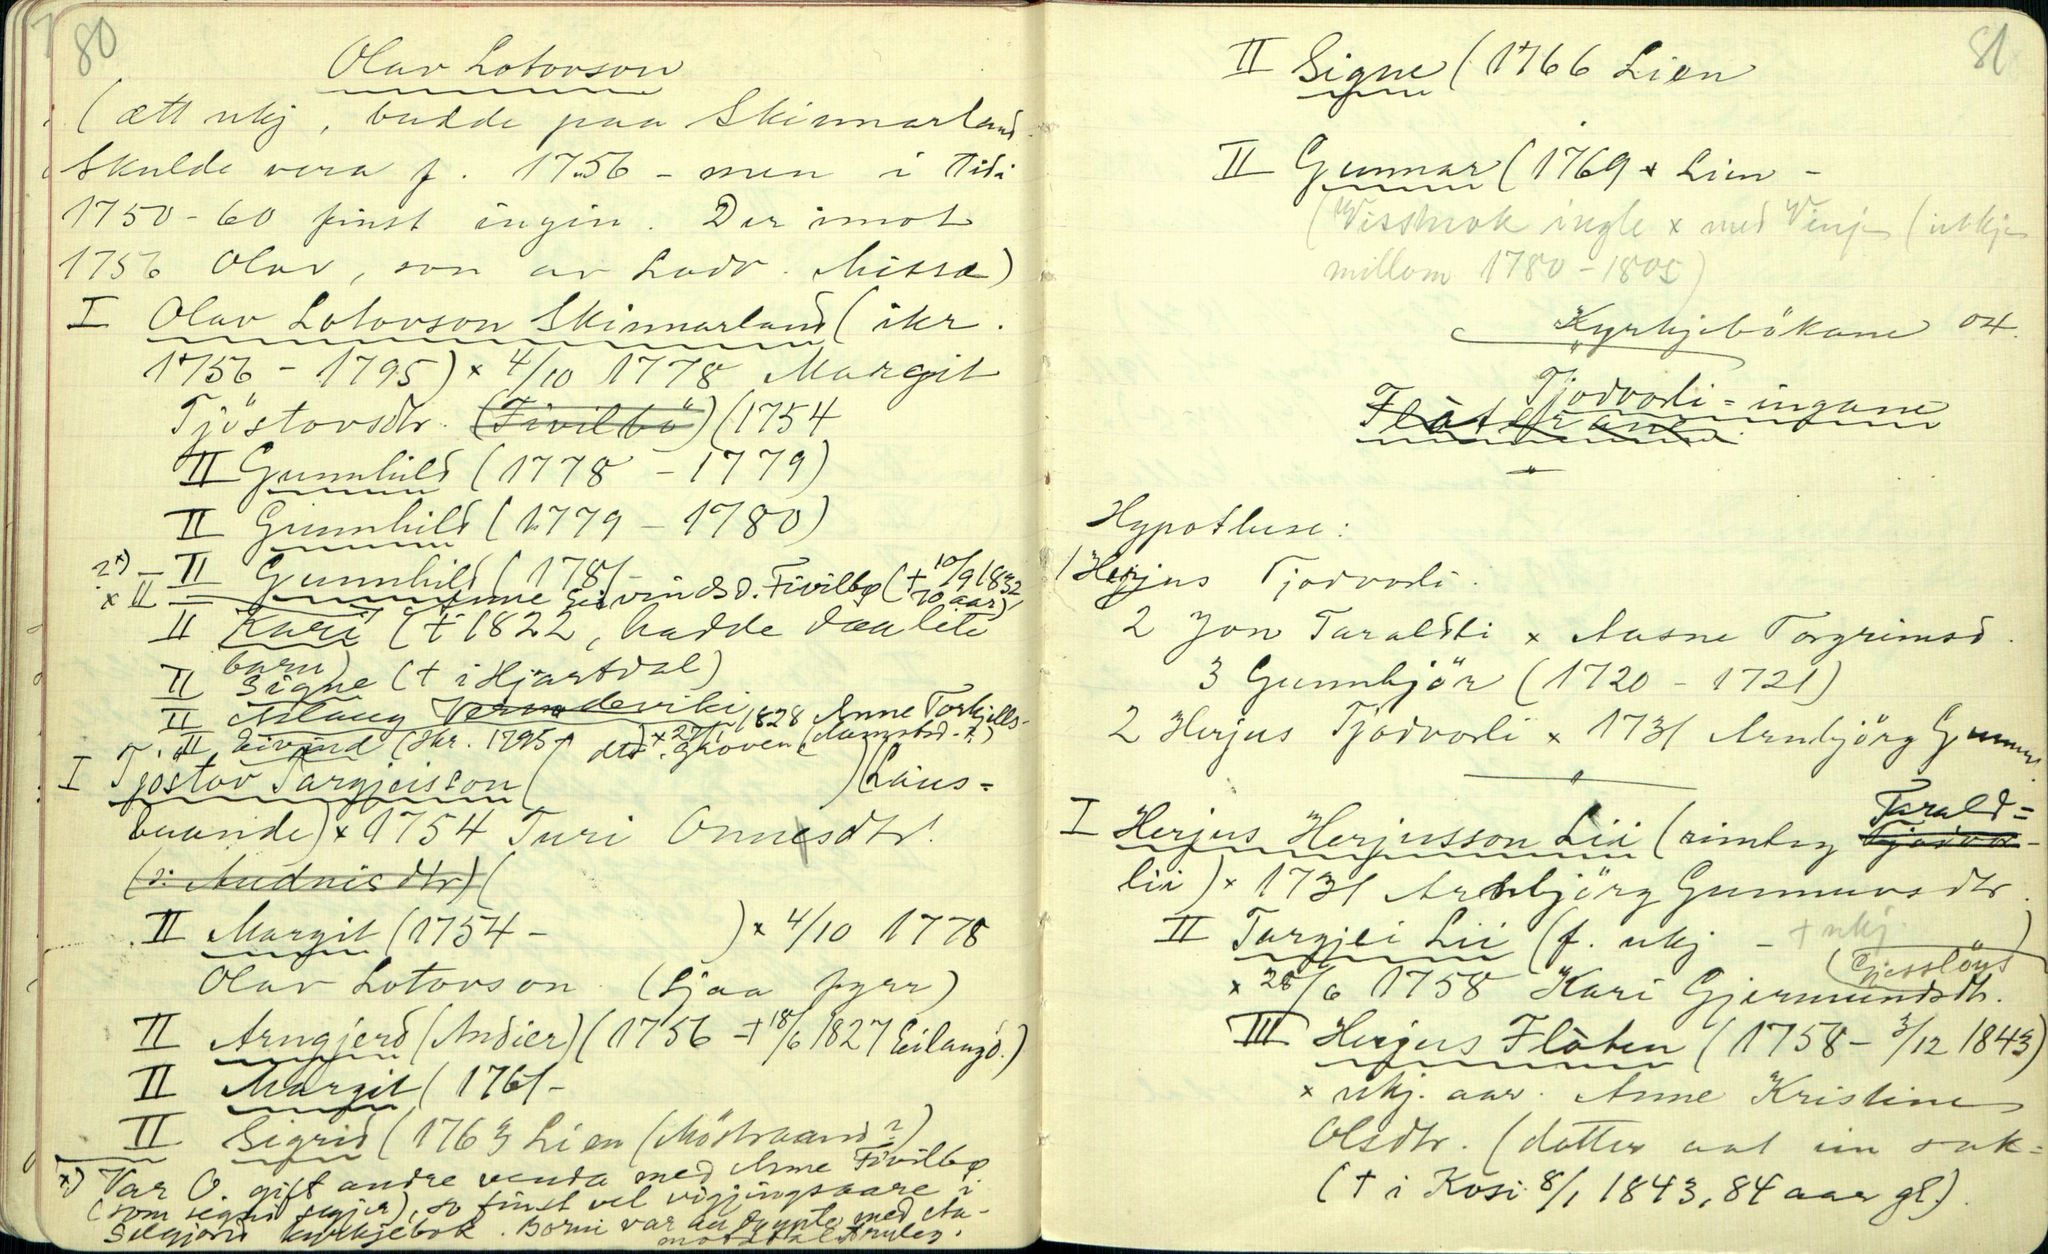 80
Olav Lotovson
(ætt ukj, budde paa Skinnarland.
Skulde vera f. 1756 - men i Tidi
1750 - 60 finst ingin. Der imot
1756 Olav, son av Lodv. Missa)
I Olav Lotovson Skinnarland (ikr.
1756 - 1795) × 4/10 1778 Margit
Tjöstovsdtr. (Fivilbö) (1754
II Gunnhild (1778 - 1779)
II Gunnhild (1779 - 1780)
II Gunnhild (1781 -
2×) × II Anne Eivindsd. Fivilbø († 10/9 1832, 70 aar)
II Kari († 1822, hadde daa lite
barn)
II Signe († i Hjartdal)
II Aslaug Vermdeviki
II Eivind (ikr. 1795 ) × 27/1 1828 Anne Torkjells-
dtr. Skoven (Aamotsd. ?)
I Tjöstov Targjeisson ( ) (Laus-
buande) × 1754 Turi Onnesdtr!
(?: Audnisdtr) (
II Margit (1754 - ) × 4/10 1778
Olav Lotovson (sjaa fyrr)
II Arngjerd (Andier) (1756 - † 18/6 1827 Eilaugd.)
II Margit (1761 -
II Sigrid (1763 Lien (Möstraand?)
×) Var O. gift andre venda med Anne Fivilbø
(som segni segjer), so finst vel vigjingsaare i
Seljord kyrkjebok. Borni var au døypte med
81
II Signe (1766 Lien
II Gunnar (1769 × Lien -
(Visstnok ingle × med Vinje (utkj.
millom 1780 - 1805)
Kyrkjebökane 04.
Tjodvorli-ingane
Flåterane
"
Hypothese:
1 Herjus Tjodvorli.
2 Jon Taraldli × Aasne Torgrimsd.
3 Gunnbjör (1720 - 1721)
2 Herjus Tjodvorli × 1731 Arnbjörg Gunnars.
I Herjus Herjusson Lii (rimleg Tjodvor- Tarald-
lii) × 1731 Arnbjörg Gunnarsdtr.
II Targjei Lii (f. ukj - † ukj )
× 28/6 1758 Kari Gjermundsdtr. (Gjersløyd
III Herjus Flåten (1758 - 3/12 1843)
× ukj. aar. Anne Kristine
Olsdtr. (dotter aat ein sak-
(† i Kosi 8/1 1843, 84 aar gl.)